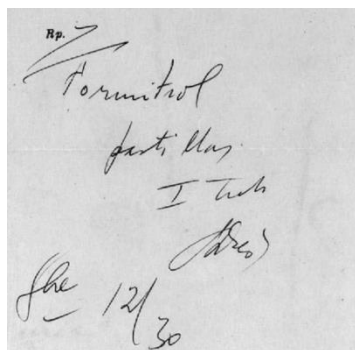 Rp.
Formitrol
pastillas
I Tub
12/30